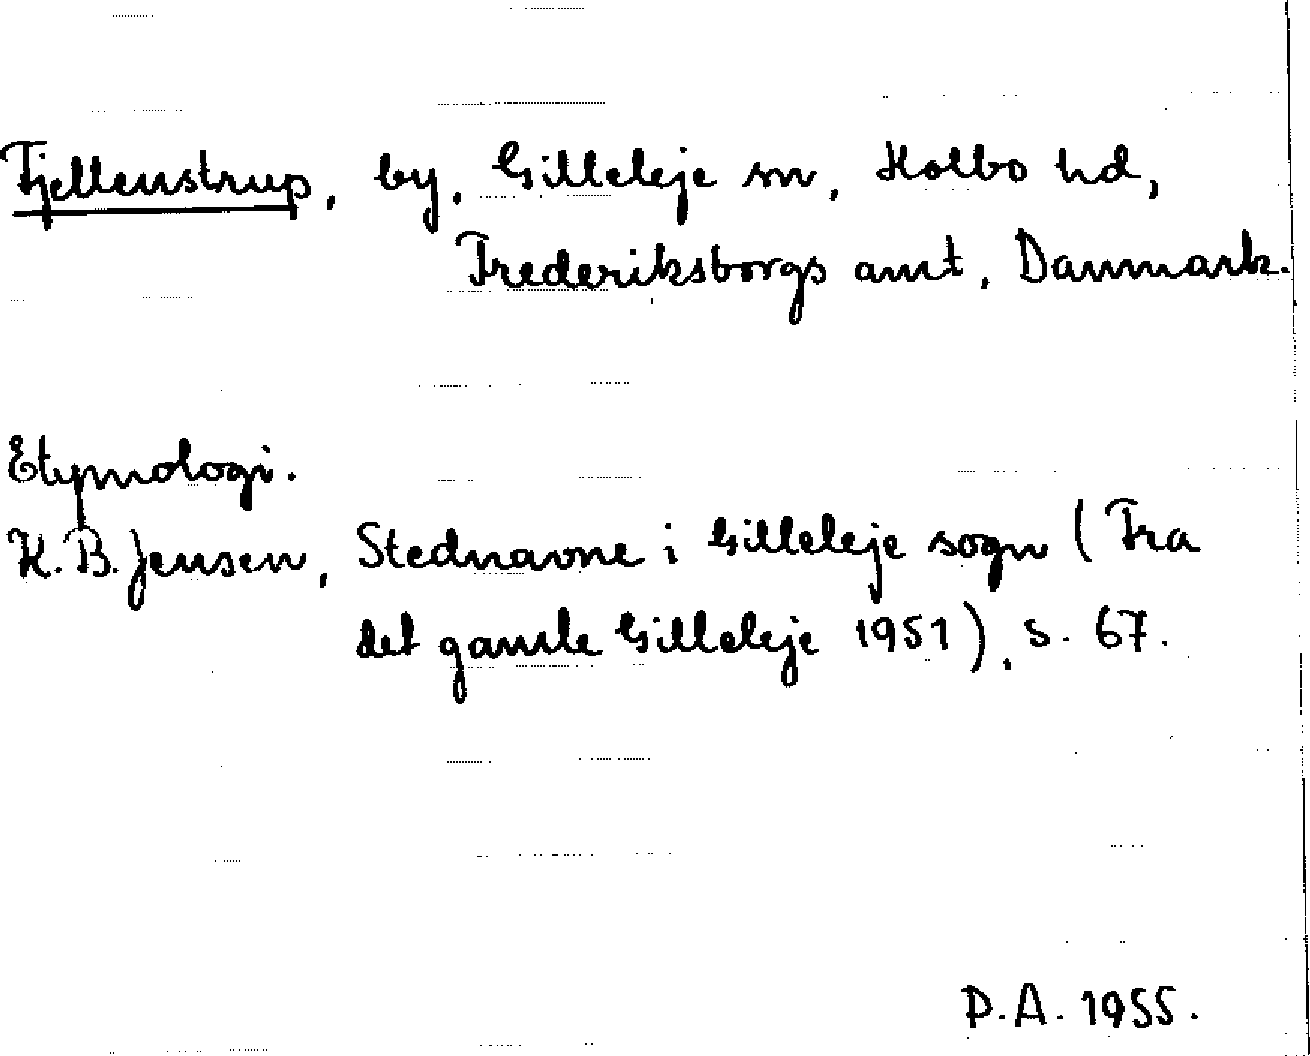 Fjellenstrup, by, Gilleleje sn, Holbo hd,
Frederiksborgs amt, Danmark.
Etymologi.
K. B. Jensen, Stednavne i Gilleleje sogn (Fra
det gamle Gilleleje 1951), s. 67.
P.A. 1955.